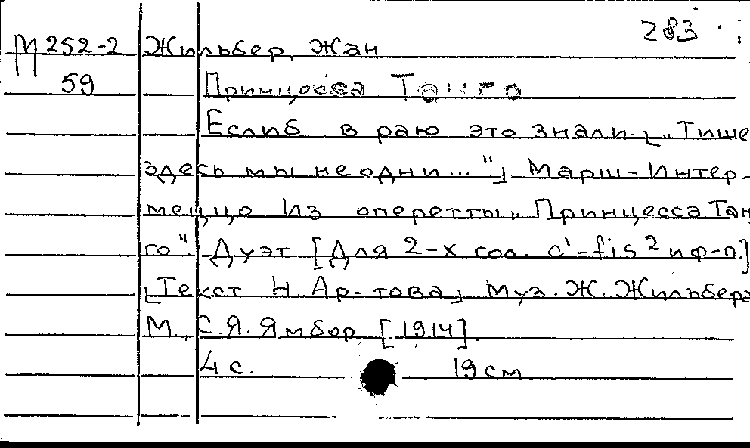 283
М 252-2 Жильбер, Жан
59 Принцесса Танго
Еслиб в раю это знали. „Тише
здесь мы не одни..."] Марш-Интер-
меццо из оперетты „Принцесса Тан
го". Дуэт [Для 2-х сол. c¹-fis² и ф-п.]
[Текст Н Ар-това] Муз. Ж. Жильбера
М., С.Я. Ямбор [1914].
4 с. 19 см